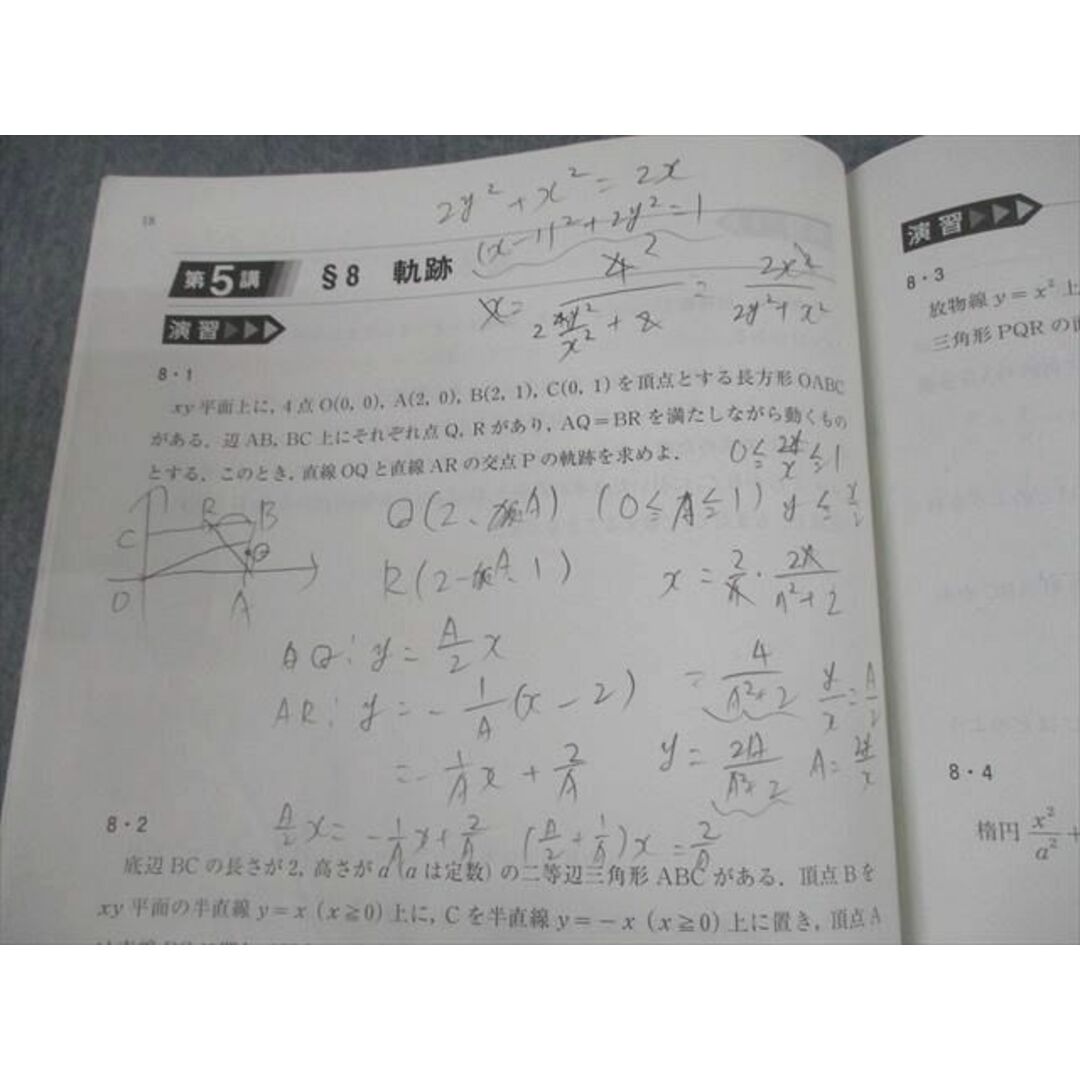 18
2y² + x² = 2x
(x-1)² + 2y² = 1
第5講 §8 軌跡
演習
8・1
xy平面上に，4点O(0, 0)，A(2, 0)，B(2, 1)，C(0, 1)を頂点とする長方形OABC
がある．辺AB，BC上にそれぞれ点Q，Rがあり，AQ＝BRを満たしながら動くもの
とする．このとき，直線OQと直線ARの交点Pの軌跡を求めよ．
R B
C
Q
O A
Q(2, A) (0≦A≦1)
R(2-A, 1)
y = A/2 x
AR: y = -1/A (x-2)
= -1/A x + 2/A
= 4/(A²+2)
y = 2A/(A²+2)
y/x = A/2
A = 2y/x
A/2 x = -1/A x + 2/A (A/2 + 1/A)x = 2/A
8・2
底辺BCの長さが2，高さがa(aは定数)の二等辺三角形ABCがある．頂点Bを
xy平面の半直線y=x (x≧0)上に，Cを半直線y=－x (x≧0)上に置き，頂点A
演習
8・3
放物線y=x²上
三角形PQRの
8・4
楕円 x²/a² +